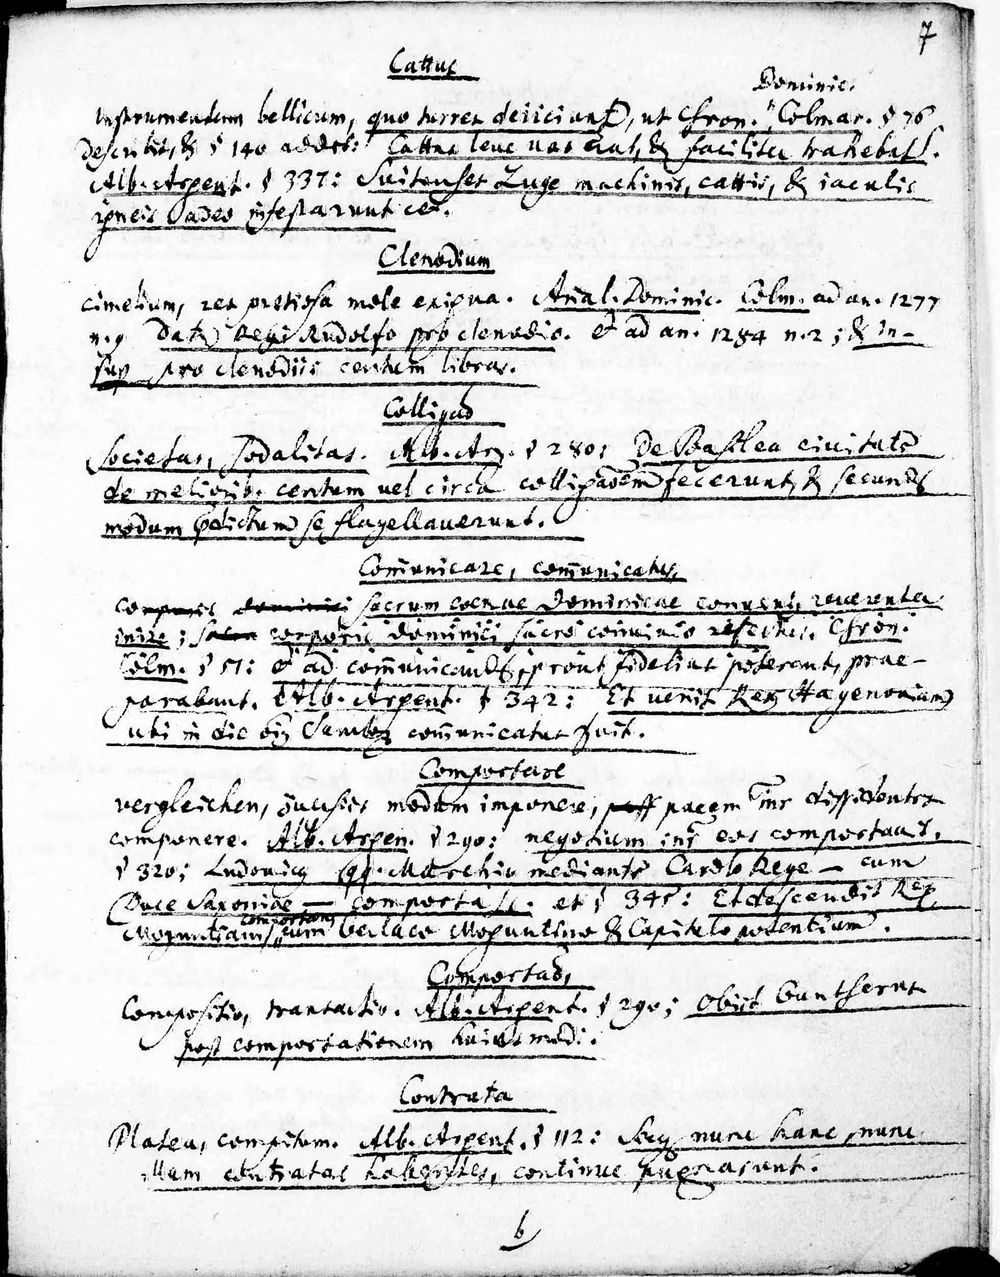 7
Cattus
Dominic.
Instrumentum bellicum, quo turres deiiciunt, ut Chron. Colmar. § 76
describit, & § 140 addit: Cattus leve vas erat, & faciliter trahebat.
Alb. Argent. § 337: Suitenses Zuge machinis, cattis, & iaculis
igneis adeo infestarunt
Clenodium
cimelium, res pretiosa mole exigua. Annal. Dominic. Colm. ad an. 1277
n. 9 Regi Rudolfo pro clenodio. et ad an. 1284 n. 2; & in-
sup pro clenodiis centum libras.
Colligatio
Societas, Sodalitas. Alb. Arg. § 280: De Basilea civitate
de meliorib. centum vel circa fecerunt, & secundum
modum se flagellaverunt.
Comunicare, comunicatus,
corporis dominici sacrum coenae Dominicae reverenter
inire; corporis dominici sacro convivio Chron.
Colm. § 51: et ad prout fidelius poterant, prae-
parabant. Alb. Argent. § 342: Et venit Rex Hagenoviam
ubi in die comunicatus fuit.
Comportare
vergleichen, modum imponere, pacem inter dissidentes
componere. Alb. Argen. § 290: negotium inter eos comportavit.
§ 320; Ludovicus Marchio mediante Carolo Rege — cum
Duce Saxoniae — et § 345: Et descendit Rex
comportans
cum Moguntino & Capitulo potentium.
Comportatio,
Compositio, transactio. Alb. Argent. § 290; Obiit Guntherus
post comportationem huiusmodi.
Contrata
Platea, compitum. Alb. Argent. § 112: nunc hanc, nunc
illam contratas habentes, continue pugnarunt.
b